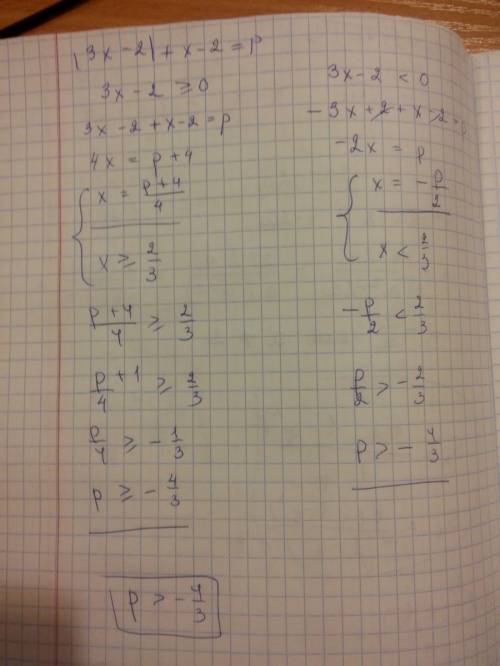 |3x-2|+x-2=p
3x-2 ≥0
3x-2+x-2=p
4x = p+4
x = p+4/4
x ≥ 2/3
p+4/4 ≥ 2/3
p/4 +1 ≥ 2/3
p/4 ≥ -1/3
p ≥ -4/3
3x-2 < 0
-3x+2+x-2=p
-2x = p
x = -p/2
x < 2/3
-p/2 < 2/3
p/2 > -2/3
p > -4/3
p > -4/3